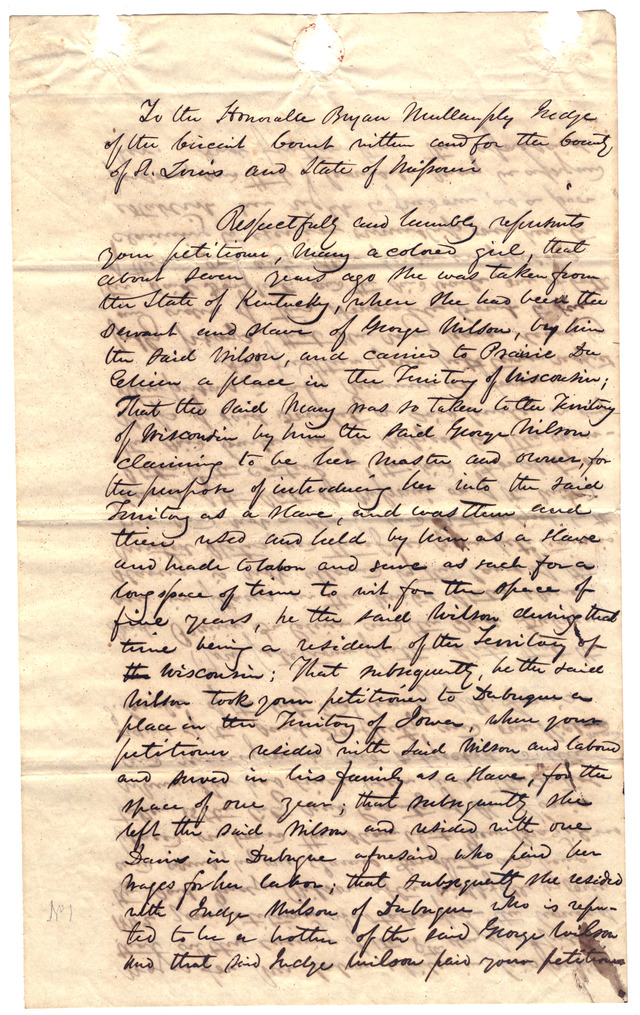 To the Honorable Bryan Mullanphy Judge
of the Circuit Court within and for the County
of St. Louis and State of Missouri
Respectfully and humbly represents
your petitioner, Mary a colored girl, that
about seven years ago she was taken from
the State of Kentucky, where she had been the
servant and slave of George Wilson, by him
the said Wilson, and carried to Prairie Du
Chien a place in the Territory of Wisconsin;
That the said Mary was so taken to the Territory
of Wisconsin by him the said George Wilson
claiming to be her master and owner, for
the purpose of introducing her into the said
Territory as a slave, and was then and
there used and held by him as a slave
and made to labor and serve as such for a
long space of time to wit for the space of
five years, he the said Wilson during that
time being a resident of the Territory of
the Wisconsin; That subsequently, he the said
Wilson took your petitioner to Dubuque a
place in the Territory of Iowa, where your
petitioner resided with said Wilson and labored
and served in his family as a slave, for the
space of one year; that subsequently she
left the said Wilson and resided with one
Davis in Dubuque aforesaid who paid her
wages for her labor; that subsequently she resided
with Judge Wilson of Dubuque who is repu-
ted to be a brother of the said George Wilson
and that said Judge Wilson paid your petitioner
No 1